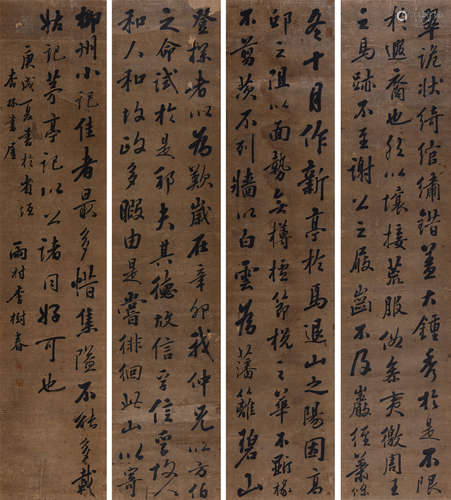 翠詭狀綺綰繡錯蓋天鍾秀於是不限
於遐裔也然以壤接荒服俗參夷徼周王
之馬跡不至謝公之屐齒不及巖徑蕭條
冬十月作新亭於馬退山之陽因高
邱之阻以面勢無欂櫨節梲之華不斲椽
不剪茨不列牆以白雲為藩籬碧山
登探者以為歎歲在辛卯我仲兄以方伯
之命試於是邦夫其德故信孚信孚故人
和人和故政多暇由是嘗徘徊此山以寄
柳州小記佳者最多惜集隘不能多載
姑記茅亭記以公諸同好可也
庚戌夏書於省垣
杏林書屋
雨村李樹春